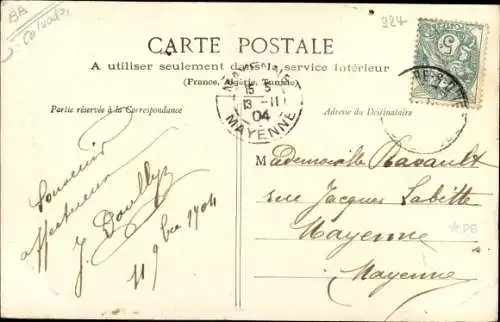 BB
Calvados
924
CARTE POSTALE
A utiliser seulement dans le service intérieur
(France, Algérie, Tunisie)
Partie réservée à la Correspondance
Adresse du Destinataire
MAYENNE
15 5
13 - 11
04
MAYENNE
5
POSTES
Souvenir
affectueux
J. Doullys
11 9bre 1904
Mademoiselle Ravault
rue Jacques Labitte
Mayenne
Mayenne
PB